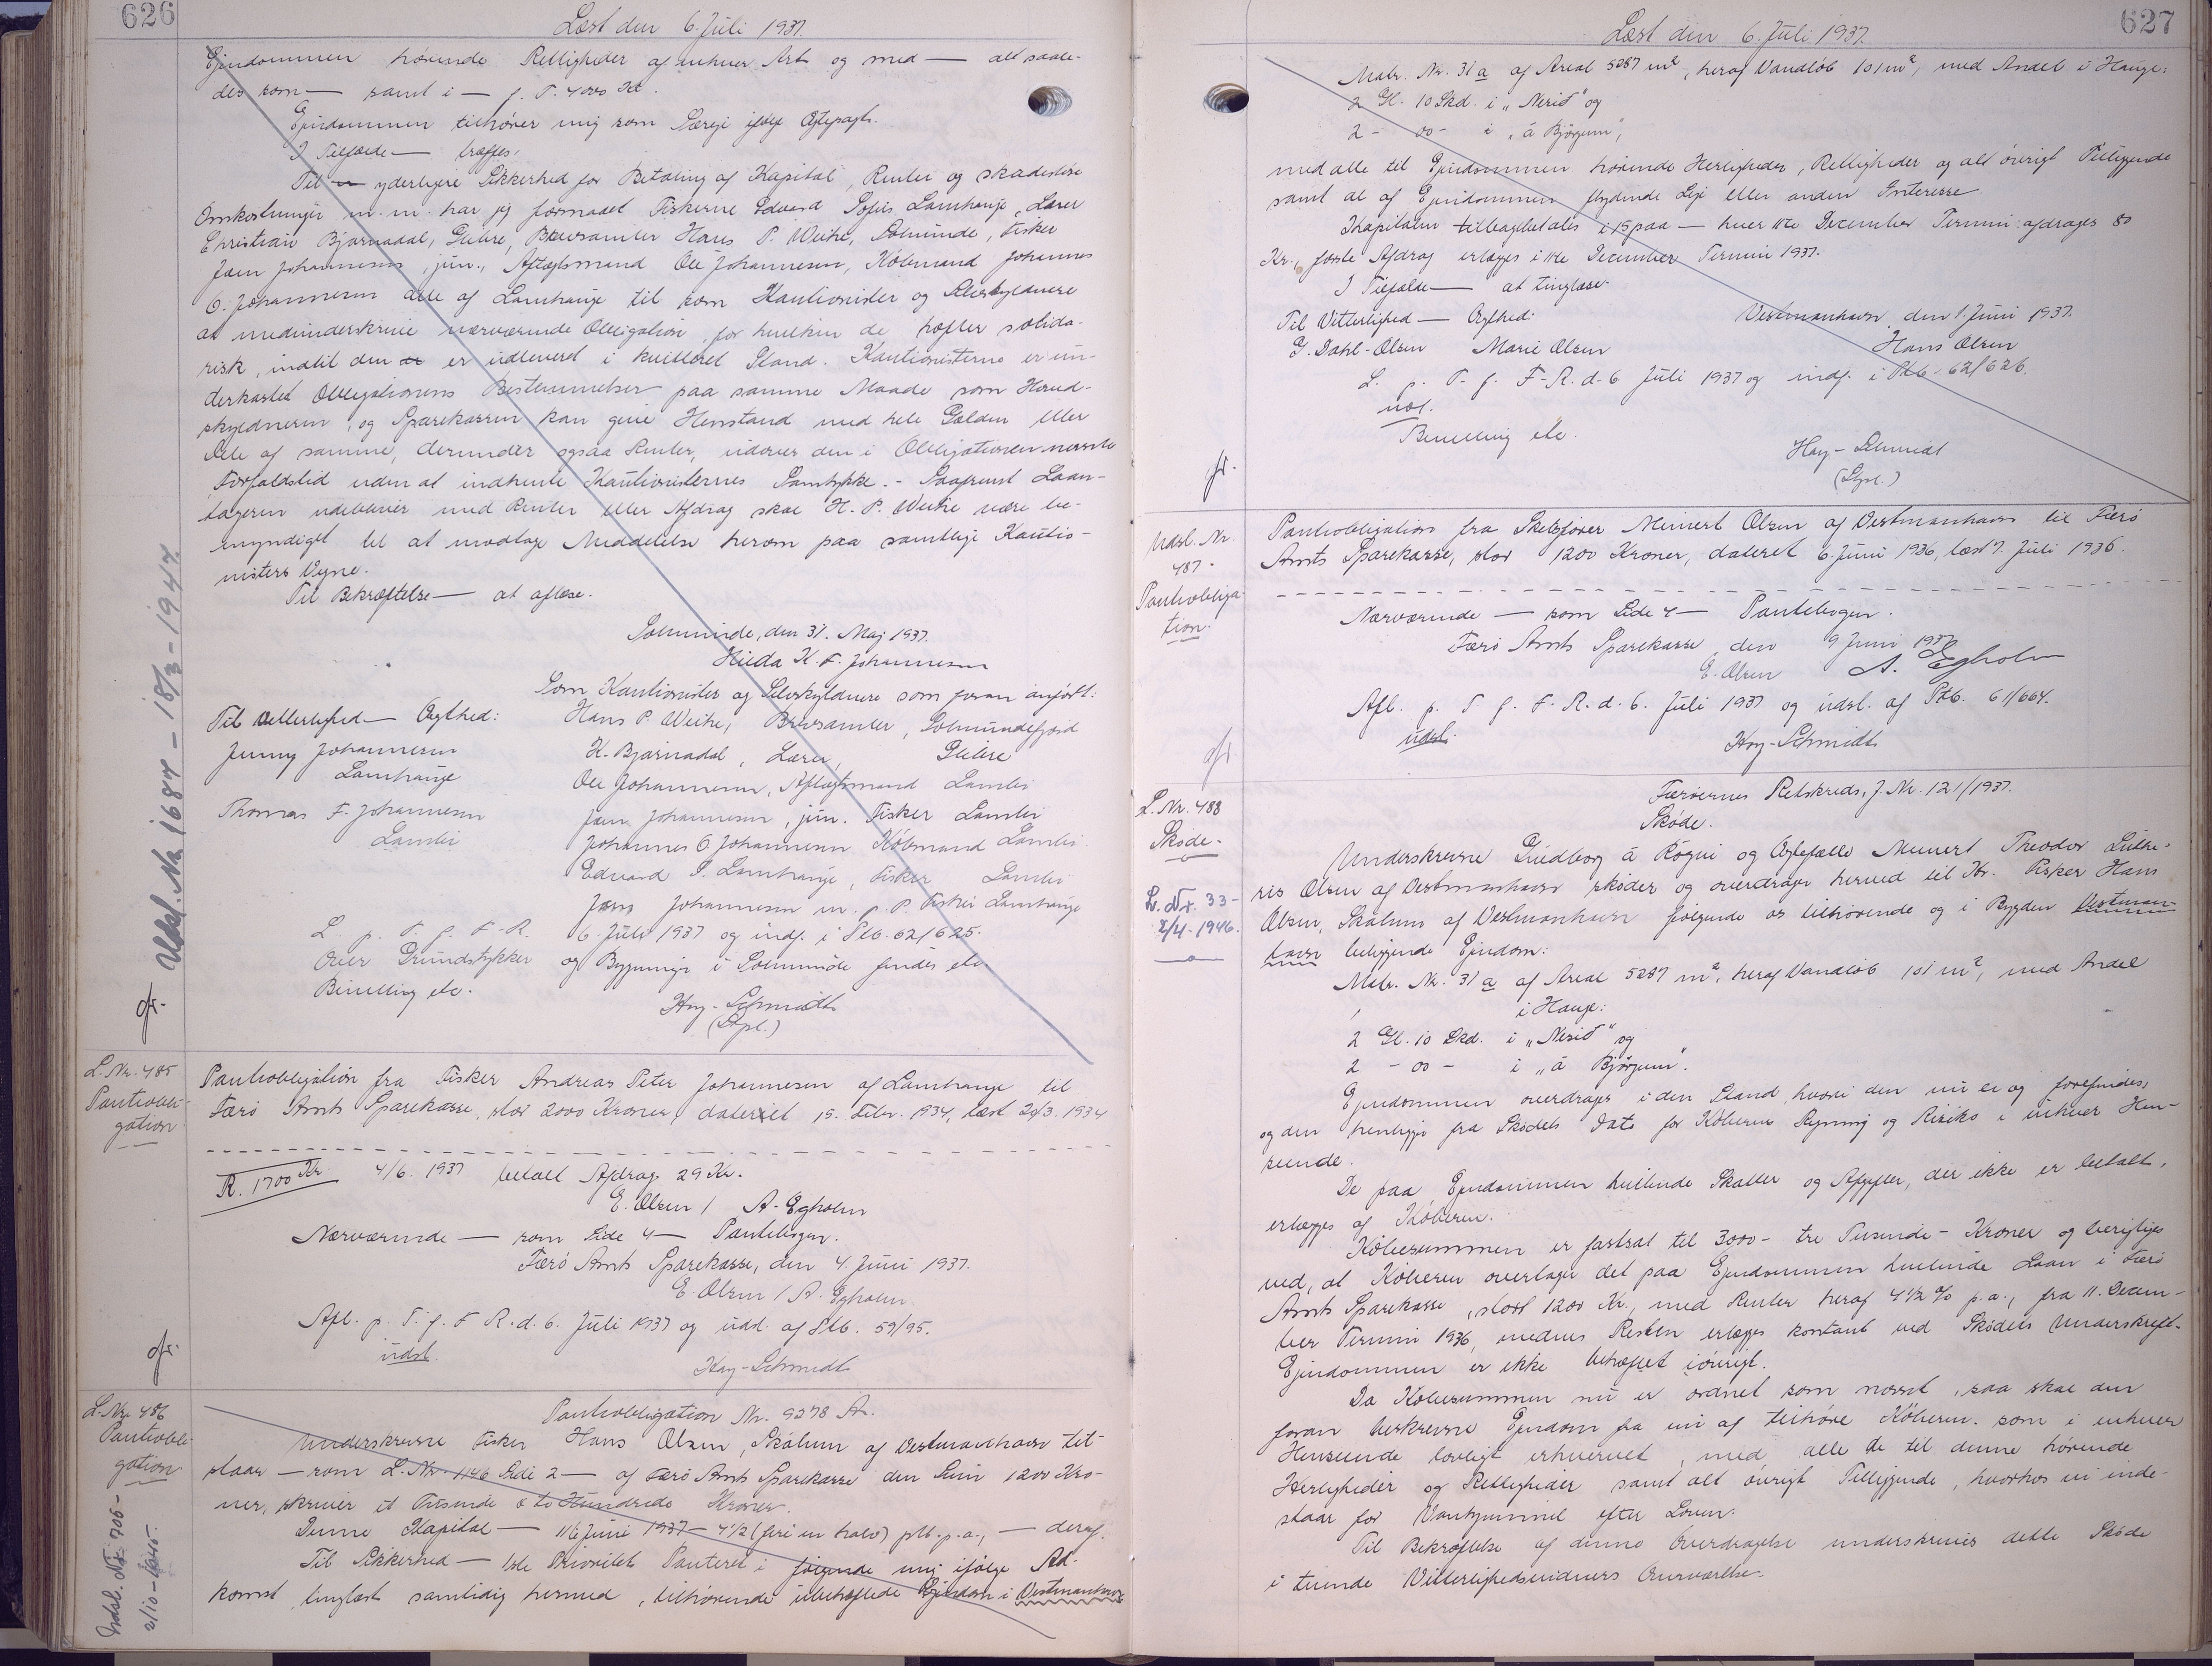 626
Læst den 6. Juli 1937.
Ejendommen hørende Rettigheder af enhver Art og med — alt saale-
des som — samt i — f. T. 4000 Kr.
Ejendommen tilhører mig som Særeje ifølge Ægtepagt.
I Tilfælde — træffes.
Til yderligere Sikkerhed for Betaling af Kapital, Renter og skadesløse
Omkostninger m. m. har jeg formaaet Fiskerne Edvard Sofus Lamhauge, Lærer
Christian Bjarnadal, Glibre, Brevsamler Hans P. Weihe, Solmunde, Fisker
Jam Johannesen, jun., Aftægtsmand Ole Johannesen, Købmand Johannes
O. Johannesen alle af Lamhauge til som Kautionister og Selvskyldnere
at medunderskrive nærværende Obligation, for hvilken de hæfter solida-
risk, indtil den er udleveret i kvitteret Stand. Kautionisterne er un-
derkastet Obligationens Bestemmelser paa samme Maade som Hoved-
skyldneren, og Sparekassen kan give Henstand med hele Gælden eller
Dele af samme, derunder ogsaa Renter, udover den i Obligationen nævnte
Forfaldstid uden at indhente Kautionisternes Samtykke. - Saafremt Laan-
tageren udebliver med Renter eller Afdrag skal H. P. Weihe være be-
myndiget til at modtage Meddelelse herom paa samtlige Kautio-
nisters Vegne.
Til Bekræftelse — at aflæse.
Solmunde, den 31. Maj 1937.
Hilda K. F. Johannesen
Som Kautionister og Selvskyldnere som foran anført:
Til Vitterlighed — Ægthed:
Hans P. Weihe, Brevsamler, Solmundefjord
Jenny Johannesen
K. Bjarnadal, Lærer, Glibre
Lamhauge
Ole Johannesen, Aftægtsmand Lambi
Thomas F. Johannesen
Jam Johannesen, jun. Fisker Lambi
Lambi
Johannes O Johannesen Købmand Lambi
Edvard S. Lamhauge, Fisker Lambi
Johannesen m. p. P. Fisker Lamhauge
L. p. T. f. F-R. 6 Juli 1937 og indf. i Ptb. 62/625.
Over Grundstykker og Bygninger i Solmunde findes etc
Bemelding etc.
Hoy-Schmidt
(Gpl.)
Udsl. No. 1687 - 18/3 - 1947
L. Nr. 485
Pantobli-
gation
Pantobligation fra Fisker Andreas Peter Johannesen af Lamhauge til
Færø Amts Sparekasse, stor 2000 Kroner, dateret 15. Febr. 1934, læst 20/3 1934
R. 1700 Kr.
4/6. 1937 betalt Afdrag 29 Kr.
E. Olsen / A. Egholm
Nærværende — som Side 4 — Pantebogen.
Færø Amts Sparekasse, den 4. Juni 1937.
E. Olsen / A. Egholm
Afl. p. T. f. F R. d. 6. Juli 1937 og udsl. af Ptb. 59/95.
udsl.
Hoy-Schmidt
L. Nr. 486
Pantobli-
gation
Pantobligation Nr. 9278 A.
Underskrevne Fisker Hans Olsen, Skálum af Vestmanhavn til-
staar — som L. Nr. 1146 Side 2 — af Færø Amts Sparekasse den Sum 1200 Kro-
ner, skriver et Tusinde & to Hundrede Kroner.
Denne Kapital — 11/6 Juni 1937 — 4½ (fire en halv) pCt. p.a., — deraf.
Til Sikkerhed — 1ste Prioritet Panteret i følgende mig ifølge Ad-
komst tinglæst samtidig hermed, tilhørende ubehæftede Ejendom i Vestmanhavn
627
Læst den 6. Juli 1937.
Matr. Nr. 31 a af Areal 5287 m², heraf Vandløb 101 m², med Andel i Hauge:
2 Gl. 10 Skd. i "Nerid" og
2 - 00 - i "á Bjørgum",
med alle til Ejendommen hørende Herligheder, Rettigheder og alt øvrigt Tilliggende
samt al af Ejendommen flydende Leje eller anden Interesse
Kapitalen tilbagebetales i 15 paa — hver 11te December Termin afdrages 80
Kr., første Afdrag erlægges i 11te December Termin 1937.
I Tilfælde — at tinglæse.
Til Vitterlighed — Ægthed:
Vestmanhavn, den 1. Juni 1937.
G. Dahl-Olsen Marie Olsen
Hans Olsen
L. p. T. f. F-R. d. 6 Juli 1937 og indf. i Ptb. 62/626.
Bemelding etc.
Hoy-Schmidt
(Gpl.)
Udsl. Nr.
487.
Pantobliga-
tion.
Pantobligation fra Skibsfører Meinert Olsen af Vestmanhavn til Færø
Amts Sparekasse, stor 1200 Kroner, dateret 6. Juni 1936, læst 7. Juli 1936.
Nærværende — som Side 4 — Pantebogen.
Færø Amts Sparekasse, den 9 Juni 1937
E. Olsen A. Egholm
Afl. p. T f. F. R. d. 6. Juli 1937 og udsl. af Ptb. 61/664.
udsl.
Hoy-Schmidt
L. Nr. 488
Skøde.
L. Nr. 33 -
2/4. 1946.
Færøernes Retskreds, J. Nr. 121/1937.
Skøde.
Underskrevne Gudborg á Røgni og Ægtefælle Meinert Theodor Luthe-
ris Olsen af Vestmanhavn skøder og overdrager herved til Hr. Fisker Hans
Olsen, Skálum af Vestmanhavn følgende os tilhørende og i Bygden Vestman-
havn beliggende Ejendom:
Matr. Nr. 31 a af Areal 5287 m², heraf Vandløb 101 m², med Andel
i Hauge:
2 Gl. 10 Skd. i "Nerid" og
2 - 00 - i "á Bjørgum".
Ejendommen overdrages i den Stand, hvori den nu er og forefindes,
og den henligger fra Skødets Dato for Køberens Regning og Risiko i enhver Hen-
seende.
De paa Ejendommen hvilende Skatter og Afgifter, der ikke er betalt,
erlægges af Køberen.
Købesummen er fastsat til 3000 - tre Tusinde - Kroner og berigtiges
ved, at Køberen overtager det paa Ejendommen hvilende Laan i Færø
Amts Sparekasse, stort 1200 Kr., med Renter heraf 4½ % p.a., fra 11. Decem-
ber Termin 1936, medens Resten erlægges kontant ved Skødets Underskrift.
Ejendommen er ikke behæftet iøvrigt.
Da Købesummen nu er ordnet som nævnt, saa skal den
foran beskrevne Ejendom fra nu af tilhøre Køberen som i enhver
Henseende lovligt erhvervet, med alle de til denne hørende
Herligheder og Rettigheder samt alt øvrigt Tilliggende, hvorhos vi inde-
staar for Vanhjemmel efter Loven.
Til Bekræftelse af denne Overdragelse underskrives dette Skøde
i tvende Vitterlighedsvidners Overværelse.